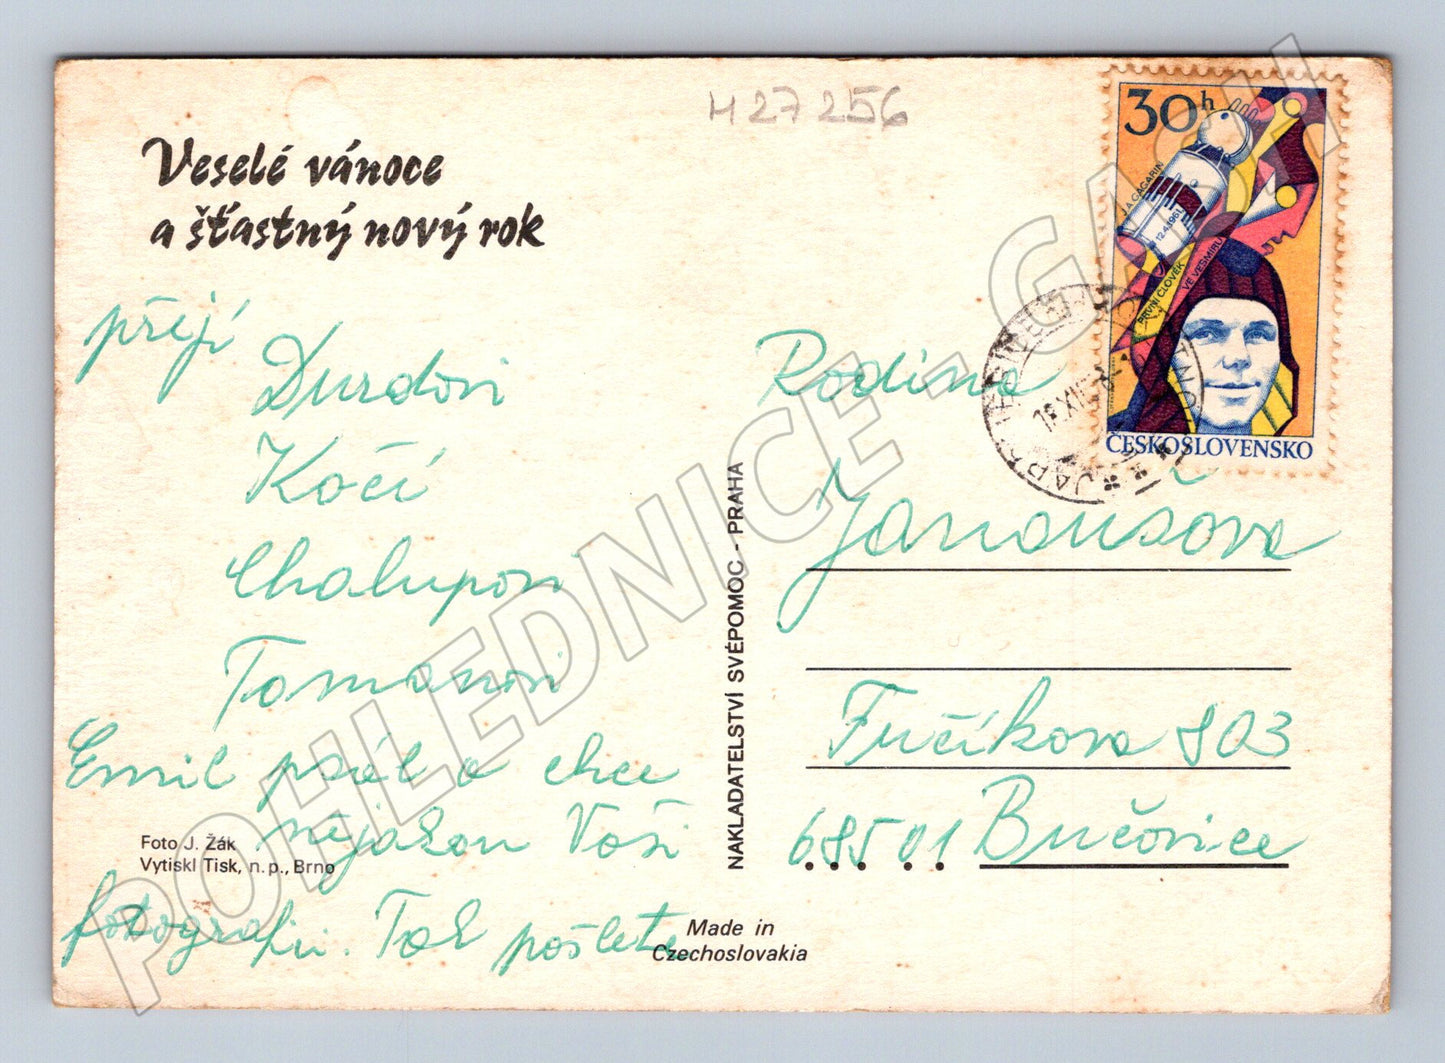 H27256
Veselé vánoce
a šťastný nový rok
přejí
Durdovi
Kočí
Chalupovi
Tomanovi
Emil psal a chce
nějakou Vaši
fotografii. Tak pošlete
Foto J. Žák
Vytiskl Tisk, n. p., Brno
NAKLADATELSTVÍ SVÉPOMOC - PRAHA
Made in
Czechoslovakia
30h
J. A. GAGARIN
12.4.1961
PRVNÍ ČLOVĚK
VE VESMÍRU
ČESKOSLOVENSKO
Rodina
Janousova
Fučíkova 803
685 01 Bučovice
POHLEDNICE - GASH